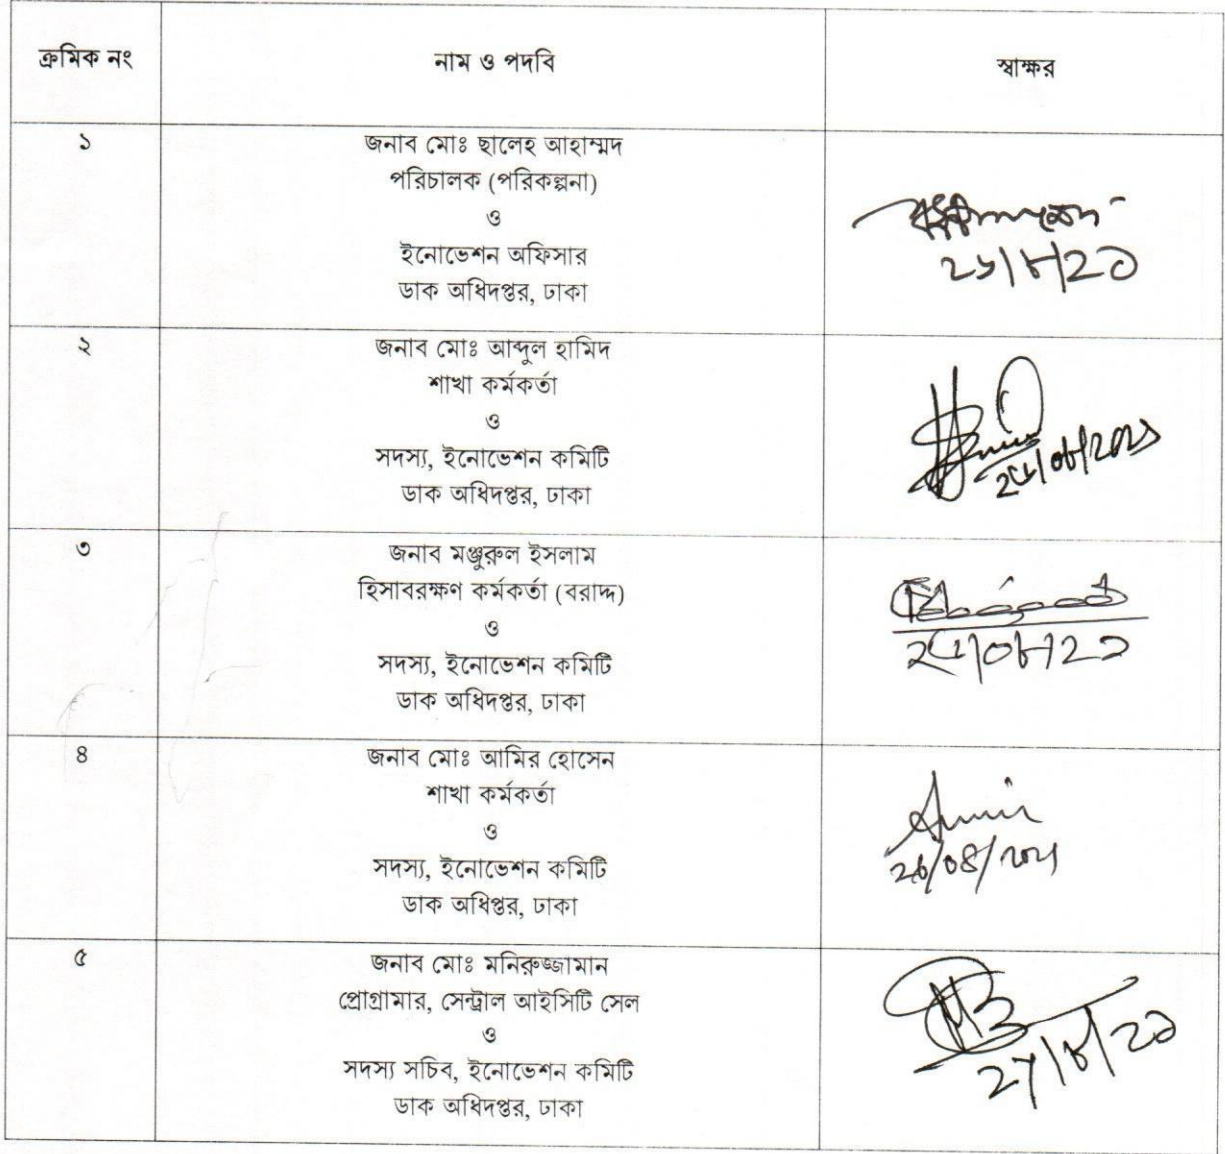 ক্রমিক নং
নাম ও পদবি
স্বাক্ষর
১
জনাব মোঃ ছালেহ আহাম্মদ
পরিচালক (পরিকল্পনা)
ও
ইনোভেশন অফিসার
ডাক অধিদপ্তর, ঢাকা
২
জনাব মোঃ আব্দুল হামিদ
শাখা কর্মকর্তা
ও
সদস্য, ইনোভেশন কমিটি
ডাক অধিদপ্তর, ঢাকা
৩
জনাব মঞ্জুরুল ইসলাম
হিসাবরক্ষণ কর্মকর্তা (বরাদ্দ)
ও
সদস্য, ইনোভেশন কমিটি
ডাক অধিদপ্তর, ঢাকা
৪
জনাব মোঃ আমির হোসেন
শাখা কর্মকর্তা
ও
সদস্য, ইনোভেশন কমিটি
ডাক অধিপ্তর, ঢাকা
Amir
26/08/2021
৫
জনাব মোঃ মনিরুজ্জামান
প্রোগ্রামার, সেন্ট্রাল আইসিটি সেল
ও
সদস্য সচিব, ইনোভেশন কমিটি
ডাক অধিদপ্তর, ঢাকা